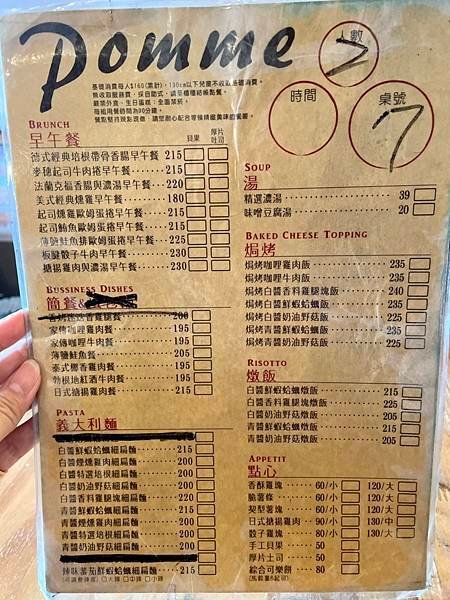 Pomme
人數
7
時間
桌號
7
基礎消費每人$160(累計)，130cm以下兒童不收取基礎消費。
無收取服務費，採自助式，請至櫃檯結帳點餐。
嚴禁外食、生日蛋糕，全面禁菸。
每組用餐時間為90分鐘。
餐點堅持現點現做，請您耐心配合等候精緻美味的餐龐。
BRUNCH
早午餐
貝果 厚片吐司
德式經典培根帶骨香腸早午餐 215
麥穗起司牛肉捲早午餐 215
法蘭克福香腸與濃湯早午餐 220
美式經典燻雞早午餐 180
起司燻雞歐姆蛋捲早午餐 215
起司鮪魚歐姆蛋捲早午餐 215
薄鹽鮭魚排歐姆蛋捲早午餐 225
板腱骰子牛肉早午餐 230
搪揚雞肉與濃湯早午餐 230
BUSSINESS DISHES
簡餐
200
家傳咖哩雞肉餐 195
家傳咖哩牛肉餐 195
薄鹽鮭魚餐 205
泰式椰香雞肉餐 195
勃根地紅酒牛肉餐 195
日式搪揚雞肉餐 195
PASTA
義大利麵
白醬鮮蝦蛤蠣細扁麵 215
白醬煙燻雞肉細扁麵 200
白醬特選培根細扁麵 200
白醬奶油野菇細扁麵 200
白醬香料雞腿塊細扁麵 220
青醬鮮蝦蛤蠣細扁麵 215
青醬煙燻雞肉細扁麵 200
青醬特選培根細扁麵 200
青醬奶油野菇細扁麵 200
辣味蕃茄鮮蝦蛤蠣細扁麵 215
(可調整辣度) □大辣 □中辣 □小辣
SOUP
湯
精選濃湯 39
味噌豆腐湯 20
BAKED CHEESE TOPPING
焗烤
焗烤咖哩雞肉飯 235
焗烤咖哩牛肉飯 235
焗烤白醬香料雞腿飯 240
焗烤白醬鮮蝦蛤蠣飯 235
焗烤白醬奶油野菇飯 225
焗烤青醬鮮蝦蛤蠣飯 235
焗烤青醬奶油野菇飯 225
RISOTTO
燉飯
白醬鮮蝦蛤蠣燉飯 215
白醬香料雞腿塊燉飯 225
白醬奶油野菇燉飯 205
青醬鮮蝦蛤蠣燉飯 215
青醬奶油野菇燉飯 205
APPETIT
點心
香酥雞塊 60/小 120/大
脆薯條 60/小 120/大
契型薯塊 60/小 120/大
日式搪揚雞肉 90/小 130/中
骰子雞塊 80/小 130/大
手工貝果 50
厚片土司 50
綜合可樂餅 80
(馬鈴薯&起司)